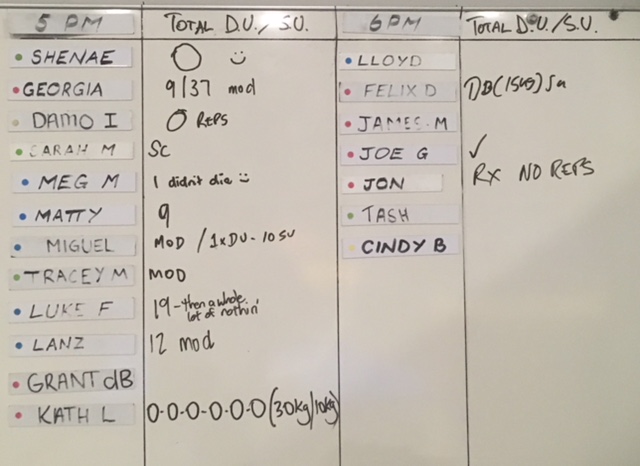 5 PM TOTAL D.U./S.U. 6PM TOTAL D.U./S.U.
SHENAE O ☺
GEORGIA 9/37 mod
DAMO I O REPS
SARAH M SC
MEG M I didn't die ☺
MATTY 9
MIGUEL MOD / 1xDU - 10 SU
TRACEY M MOD
LUKE F 19 - then a whole
lot of nothin'
LANZ 12 mod
GRANT dB
KATH L 0-0-0-0-0-0 (30kg/10kg)
LLOYD
FELIX D DB (15kg)
JAMES.M
JOE G ✓
JON RX NO REPS
TASH
CINDY B